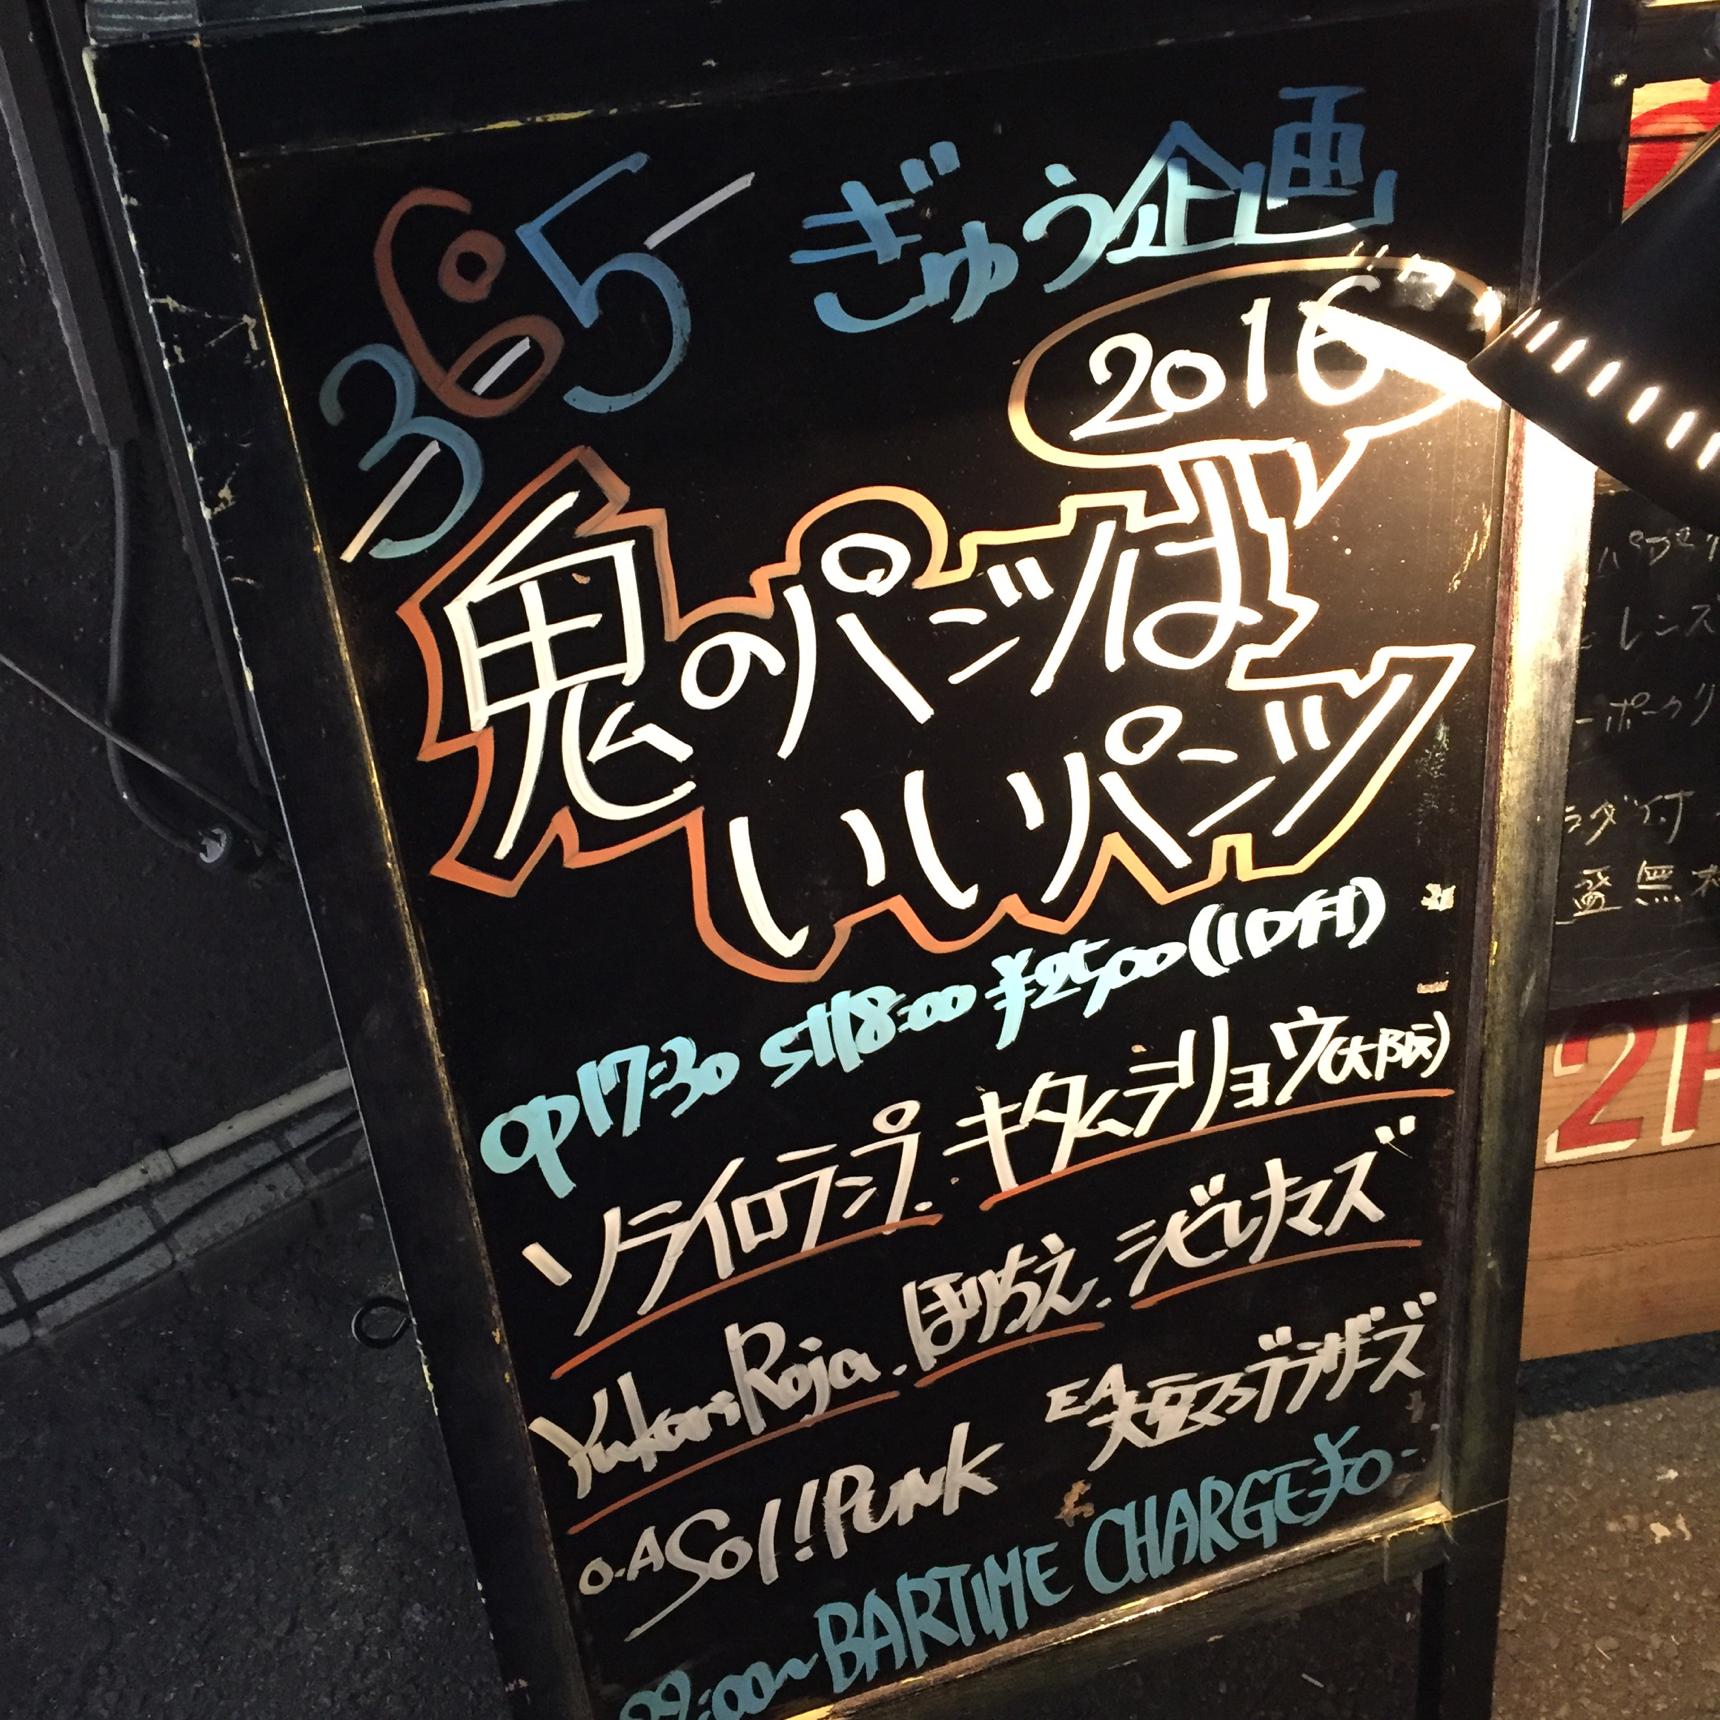 365 ぎゅう企画
2016
鬼のパンツは
いいパンツ
OP17:30 ST18:00 ¥2500(1D付)
ソライロランプ. キタムラリョウ(大阪)
YukariRoja. ほりちえ. シビレナマズ
O.A Sol!!PUNK EA 大豆マンブラザーズ
22:00~BARTIME CHARGE¥0-
レンス
ポークリ
ラダ付
盛無
2F